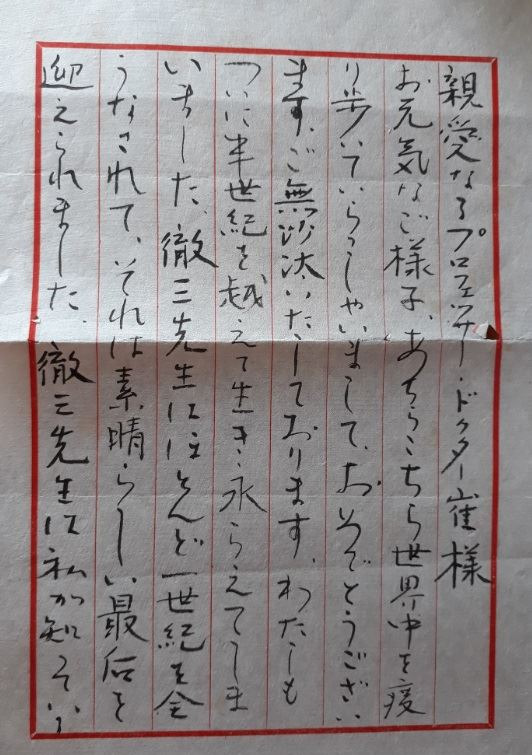 親愛なるプロフェッサー・ドクター崔様
お元気なご様子、あちらこちら世界中を疫
り歩いていらっしゃいまして、おめでとうござい
ます、ご無沙汰いたしております、わたしも
ついに半世紀を越えて生き永らえてしま
いました、徹三先生はほとんど一世紀を全
うなされて、それは素晴らしい最后を
迎えられました、徹三先生は私が知っている